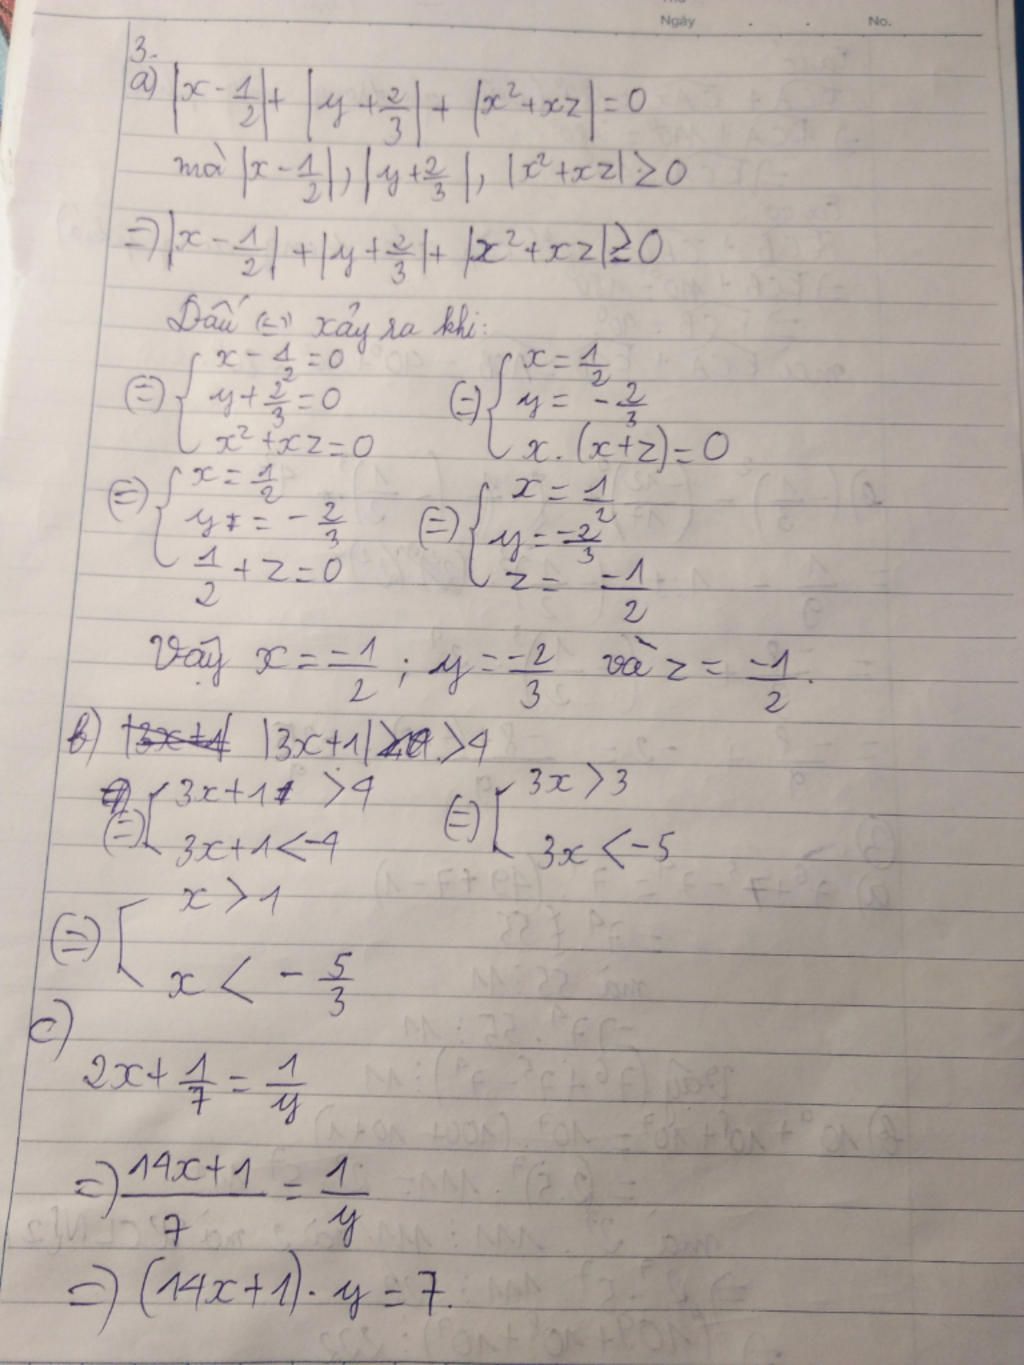 Ngày . . No.
3.
a) |x - 1/2| + |y + 2/3| + |x² + xz| = 0
mà |x - 1/2|, |y + 2/3|, |x² + xz| ≥ 0
=> |x - 1/2| + |y + 2/3| + |x² + xz| ≥ 0
Dấu (=) xảy ra khi:
(=) { x - 1/2 = 0 (=) { x = 1/2
y + 2/3 = 0 y = - 2/3
x² + xz = 0 x. (x + z) = 0
(=) { x = 1/2 (=) { x = 1/2
y = - 2/3 y = -2/3
1/2 + z = 0 z = -1/2
Vậy x = -1/2 ; y = -2/3 và z = -1/2.
b) |3x+1| > 4
(=) [ 3x+1 > 4 (=) [ 3x > 3
3x+1 < -4 3x < -5
(=) [ x > 1
x < - 5/3
c)
2x + 1/7 = 1/y
=> 14x+1/7 = 1/y
=> (14x+1). y = 7.